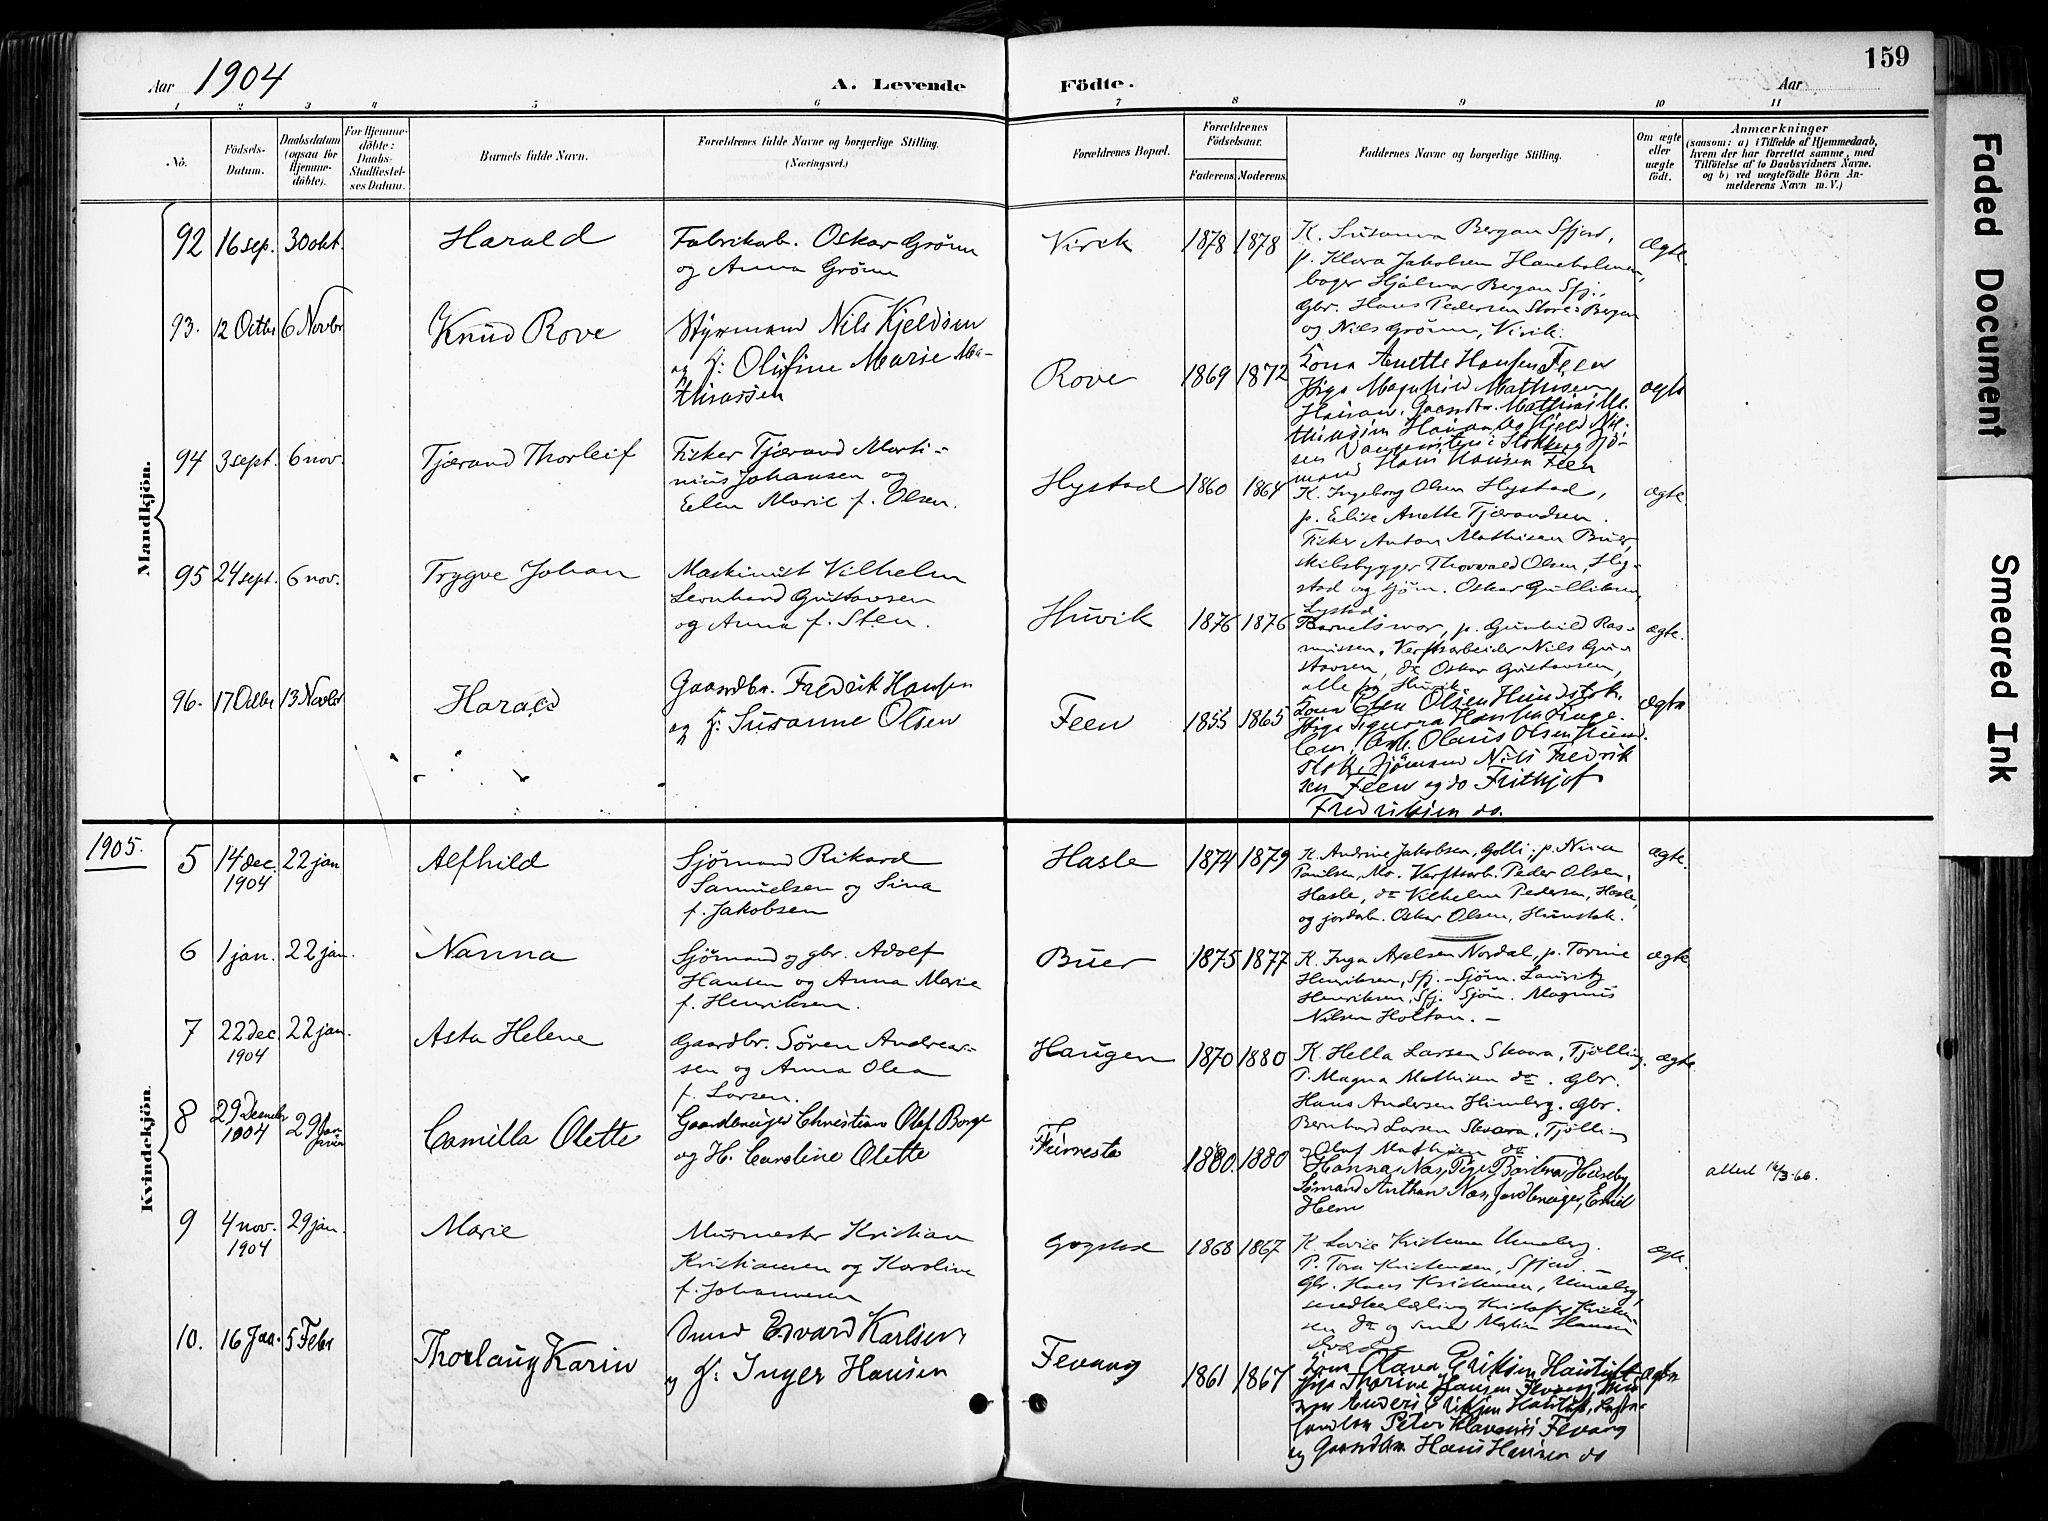 Aar 1904
A. Levende
Födte.
Aar
159
1 2 3 4 5 6 7 8 9 10 11
No.
Födsels-
Datum.
Daabsdatum
(ogsaa for
Hjemme-
döbte).
For Hjemme-
döbte:
Daabs-
Stadfæstel-
ses Datum.
Barnets fulde Navn.
Forældrenes fulde Navne og borgerlige Stilling.
(Næringsvei.)
Forældrenes Bopæl.
Forældrenes
Födselsaar.
Faderens. Moderens.
Faddernes Navne og borgerlige Stilling.
Om ægte
eller
uægte
födt.
Anmærkninger
(saasom: a) i Tilfælde af Hjemmedaab,
hvem der har forrettet samme, med
Tilföielse af to Daabsvidners Navne.
og b) ved uægtefödte Börn An-
melderens Navn m. V.)
Mandkjön.
92 16 sep. 30 okt. Harald
Fabrikarb. Oskar Grønn
og Anna Grønn
Virik 1878 1878
K. Susanna Bergan Sfjord,
p. Klara Jakobsen Haneholmen,
bager Hjalmar Bergan Sfj.,
Gbr. Hans Pedersen Store-Bergan
og Nils Grønn, Virik.
Ægte.
93. 12 Octbr 6 Novbr Knud Rove
Styrmand Nils Kjeldsen
og H: Olufine Marie Ma-
thiassen
Rove 1869 1872
Kona Anette Hansen Feen
Piga Magnhild Mathisen
ægte
94 3 sept. 6 nov. Tjærand Thorleif
Fisker Tjærand Marti-
nius Johansen og
Elen Marie f. Olsen.
Hystad 1860 1864
Hans Hansen Feen
K. Ingeborg Olsen Hystad,
p. Elise Anette Tjærandsen.
Fisker Anton Mathisen Buer,
skibsbygger Thorvald Olsen, Hy-
stad og sjøm. Oskar Gulliksen,
Lystad.
ægte.
95 24 sept. 6 nov. Trygve Johan
Maskinist Vilhelm
Leonhard Gustavsen
og Anna f. Sten.
Huvik 1876 1876
Barnets mor, p. Gunhild Ras-
mussen, Verftsarbeider Nils Gu-
stavsen, do Oskar Gustavsen,
alle paa Huvik.
ægte.
96. 17 Octbr 13 Novbr Harald
Gaardbr. Fredrik Hansen
og H: Susanne Olsen
Feen 1855 1865
Kona Elen Olsen Hundstok
Arb. Olaus Olsen Hund-
stok, Sjømand Nils Fredrik
sen Feen og do Frithjof
Fredriksen do.
Ægte
1905.
Kvindekjön.
5 14 dec. 1904 22 jan Alfhild
Sjømand Rikard
Samuelsen og Sina
f. Jakobsen
Hasle 1874 1879
K. Andrine Jakobsen, Golli. p. Nina
Paulsen, Mo. Verftsarb. Peder Olsen,
Hasle, do Vilhelm Pedersen, Hasle,
og jordarb. Oskar Olsen, Hundstok.
Ægte.
6 1 jan. 22 jan. Nanna
Sjømand og gbr. Adolf
Hansen og Anna Marie
f. Henriksen.
Buer 1875 1877
K. Inga Axelsen Nordal, p. Torine
Henriksen, Sfj. - Sjøm. Lauritz
Henriksen, Sfj. Sjøm. Magnus
Nilsen Holtan. -
Ægte.
7 22 dec. 1904 22 jan. Asta Helene
Gaardbr. Søren Andrea-
sen og Anna Olea
f. Larsen.
Haugen 1870 1880
K. Hella Larsen Skaara, Tjølling.
P. Magna Mathisen do. Gbr.
Hans Andersen Himberg. Gbr.
Bernhard Larsen Skaara, Tjølling
og Olaf Mathisen do
ægte.
8 29 Decmbr 1904 29 Januar Camilla Olette
Gaardbruger Christian Olaf Borge
og H. Caroline Olette
Furresta 1880. 1880
Sømand Anthon Næs, Jordbruger, Emil
Hem
attest 16/3-66.
9 4 nov. 1904 29 jan. Marie
Murmester Kristian
Kristiansen og Karoline
f. Johannesen
Gogstad 1868 1867
K. Lovise Kristensen Unneberg.
P. Tora Kristensen, Sfjord. -
Gbr. Hans Kristensen, Unneberg,
sen do og smed Martin Hansen
ægte.
10. 16 Jan. 5 Febr Thorlaug Karin
Smed Edvard Karlsen
og H: Inger Hansen
Fevang 1861 1867
Kona Olava Eriksen Haistuft
Piga Thorine Hansen Fevang,
Anders Eriksen Haistuft,
Peter Klavenes Fevang
og Gaardbr. Hans Hansen do
ægte
Faded Document
Smeared Ink